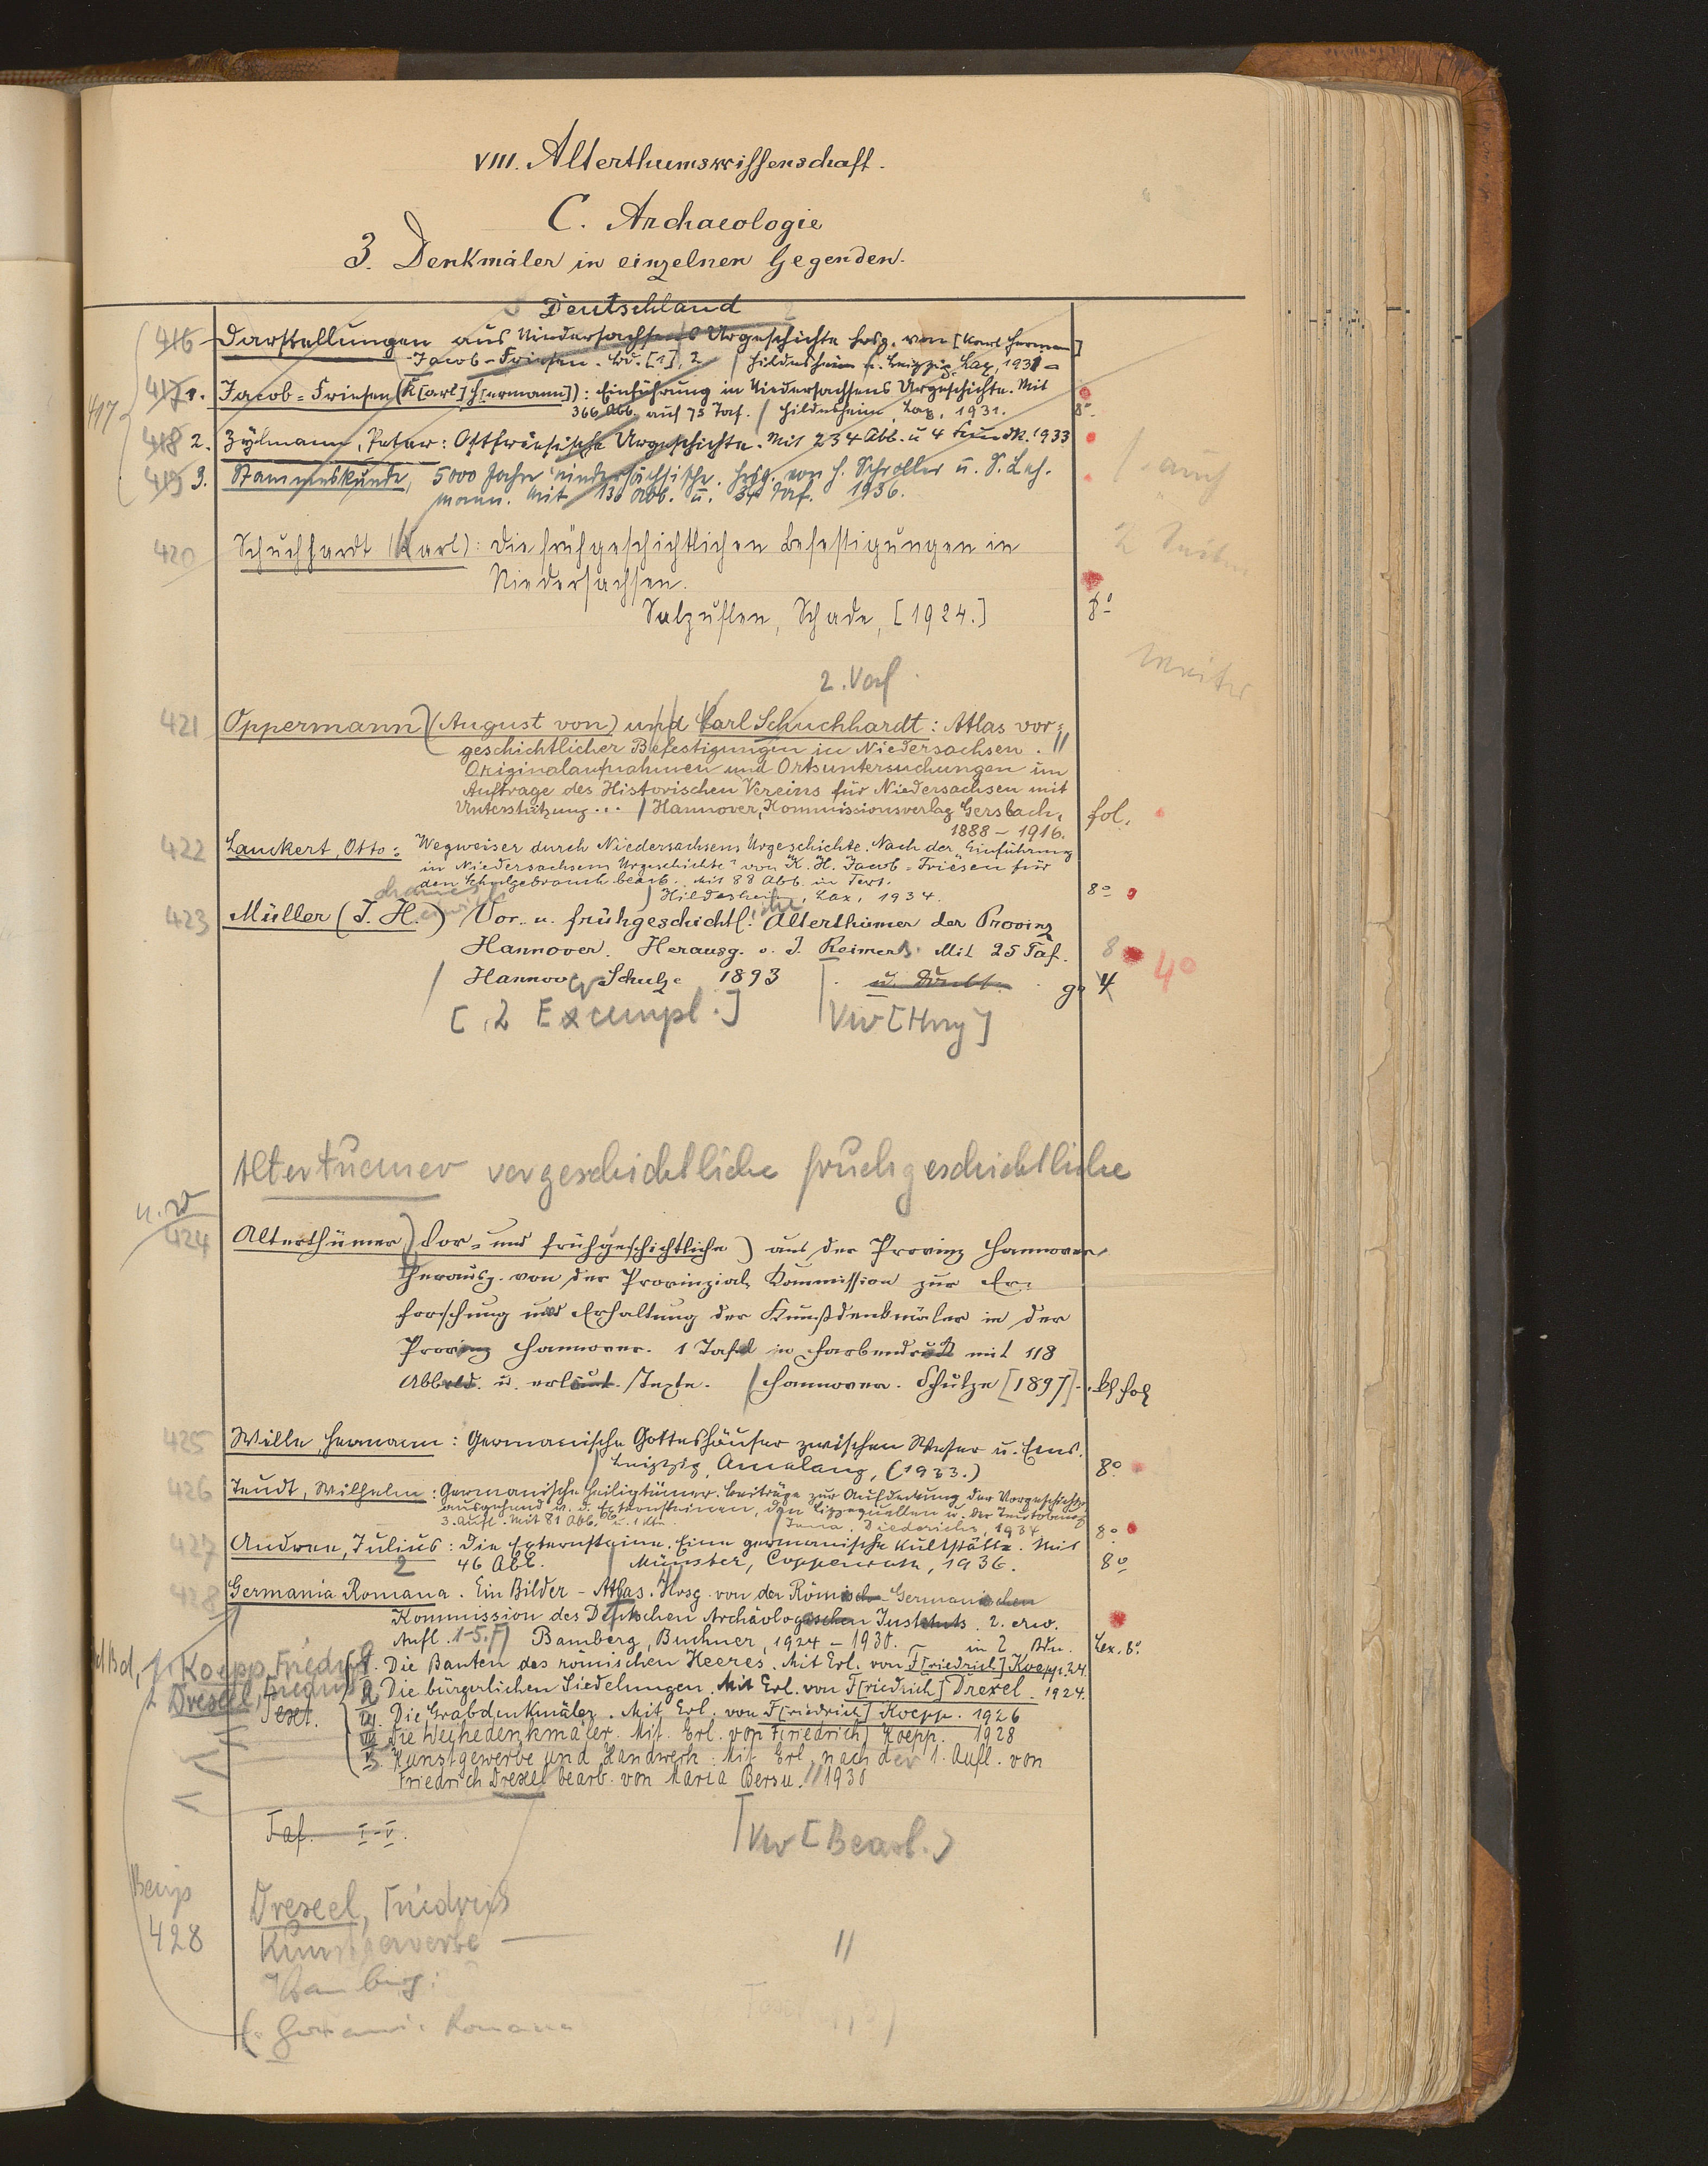 VIII. Alterthumswissenschaft.
C. Archaeologie
3. Denkmäler in einzelnen Gegenden.
Deutschland
416 Darstellungen aus Niedersachsens Urgeschichte hrsg. von [Karl Herman]
Jacob-Friesen. Bd. [1], 2 / Hildesheim u. Leipzig, Lax, 1931 -
417 1. Jacob-Friesen (K[arl] H[ermann]): Einführung in Niedersachsens Urgeschichte. Mit
417
366 Abb. auf 75 Taf. / Hildesheim, Lax, 1931. 8°.
418 2. Zylmann, Peter: Ostfriesische Urgeschichte. Mit 234 Abb. u 4 1933
419 3. Stammeskunde, 5000 Jahre niedersächsische. Hrsg. von H. Schroller u. S. Leh-
mann. Mit 130 Abb. u. 34 Taf. 1936.
auch
2
420 Schuchhardt (Karl): Die frühgeschichtlichen Befestigungen in
Niedersachsen.
Salzuflen, Schade, [1924.] 8°
weiter
2. Verf
421 Oppermann (August von) und Carl Schuchhardt: Atlas vor-
geschichtlicher Befestigungen in Niedersachsen. //
Originalaufnahmen und Ortsuntersuchungen im
Auftrage des Historischen Vereins für Niedersachsen mit
Unterstützung... / Hannover, Kommissionsverlag Gersbach, fol.
1888 - 1916.
422 Lauckert, Otto: Wegweiser durch Niedersachsens Urgeschichte. Nach der „Einführung
in Niedersachsens Urgeschichte" von K. H. Jacob-Friesen für
den Schulgebrauch bearb. Mit 88 Abb. im Text.
/ Hildesheim, Lax, 1934. 8°
423 Müller (J. H.) Vor- u. frühgeschichtl. iche Alterthümer der Provinz
Hannover. Herausg. v. J. Reimers. Mit 25 Taf. 8 4°
/ Hannover Schulze 1893 gr 4
[2 Exempl.] Vw [Hrsg]
Altertuemer vorgeschichtliche fruehgeschichtliche
u. W
424 Alterthümer (Vor- und frühgeschichtliche) aus der Provinz Hannover,
Herausg. von der Provinzial Kommission zur Er-
forschung und Erhaltung der Kunstdenkmäler in der
Provinz Hannover. 1 Tafel in Farbendruck mit 118
Abbild. u. erläut. Texte. / Hannover. Schulze [1897]. fol
425 Wille, Hermann: Germanische Gotteshäuser zwischen Weser u. Ems.
/ Leipzig, Amelang, (1933.) 8°
426 Teudt, Wilhelm: Germanische Heiligtümer. Beiträge zur Aufdeckung der Vorgeschichte,
ausgehend v. d. Externsteinen, den Lippequellen u. der Teutoburg
3. Aufl. Mit 81 Abb. u. 1 Kte. / Jena, Diederichs, 1934 8°
427 Andree, Julius: Die Externsteine. Eine germanische Kultstätte. Mit
46 Abb. / Münster, Coppenrath, 1936. 8°
2
428 Germania Romana. Ein Bilder-Atlas. Hrsg. von der Römisch-Germanischen
Kommission des Deutschen Archäologischen Instituts. 2. erw.
Aufl. 1-5. Bamberg, Buchner, 1924 - 1930. in 2 Bdn. Lex. 8°
1. Koepp, Friedrich
I. Die Bauten des römischen Heeres. Mit Erl. von F[riedrich] Koepp. 24.
2 Drexel,
II. Die bürgerlichen Siedelungen. Mit Erl. von F[riedrich] Drexel. 1924.
Text.
III. Die Grabdenkmäler. Mit Erl. von F[riedrich] Koepp. 1926
IV. Die Weihedenkmäler. Mit Erl. von F[riedrich] Koepp. 1928
V. Kunstgewerbe und Handwerk. Mit Erl. nach der 1. Aufl. von
Friedrich Drexel bearb. von Maria Bersu. // 1930
Taf. I-V.
Vw [Bearb.]
428
Drexel, Friedrich
Kunstgewerbe — //
Bamberg:
Germania Romana